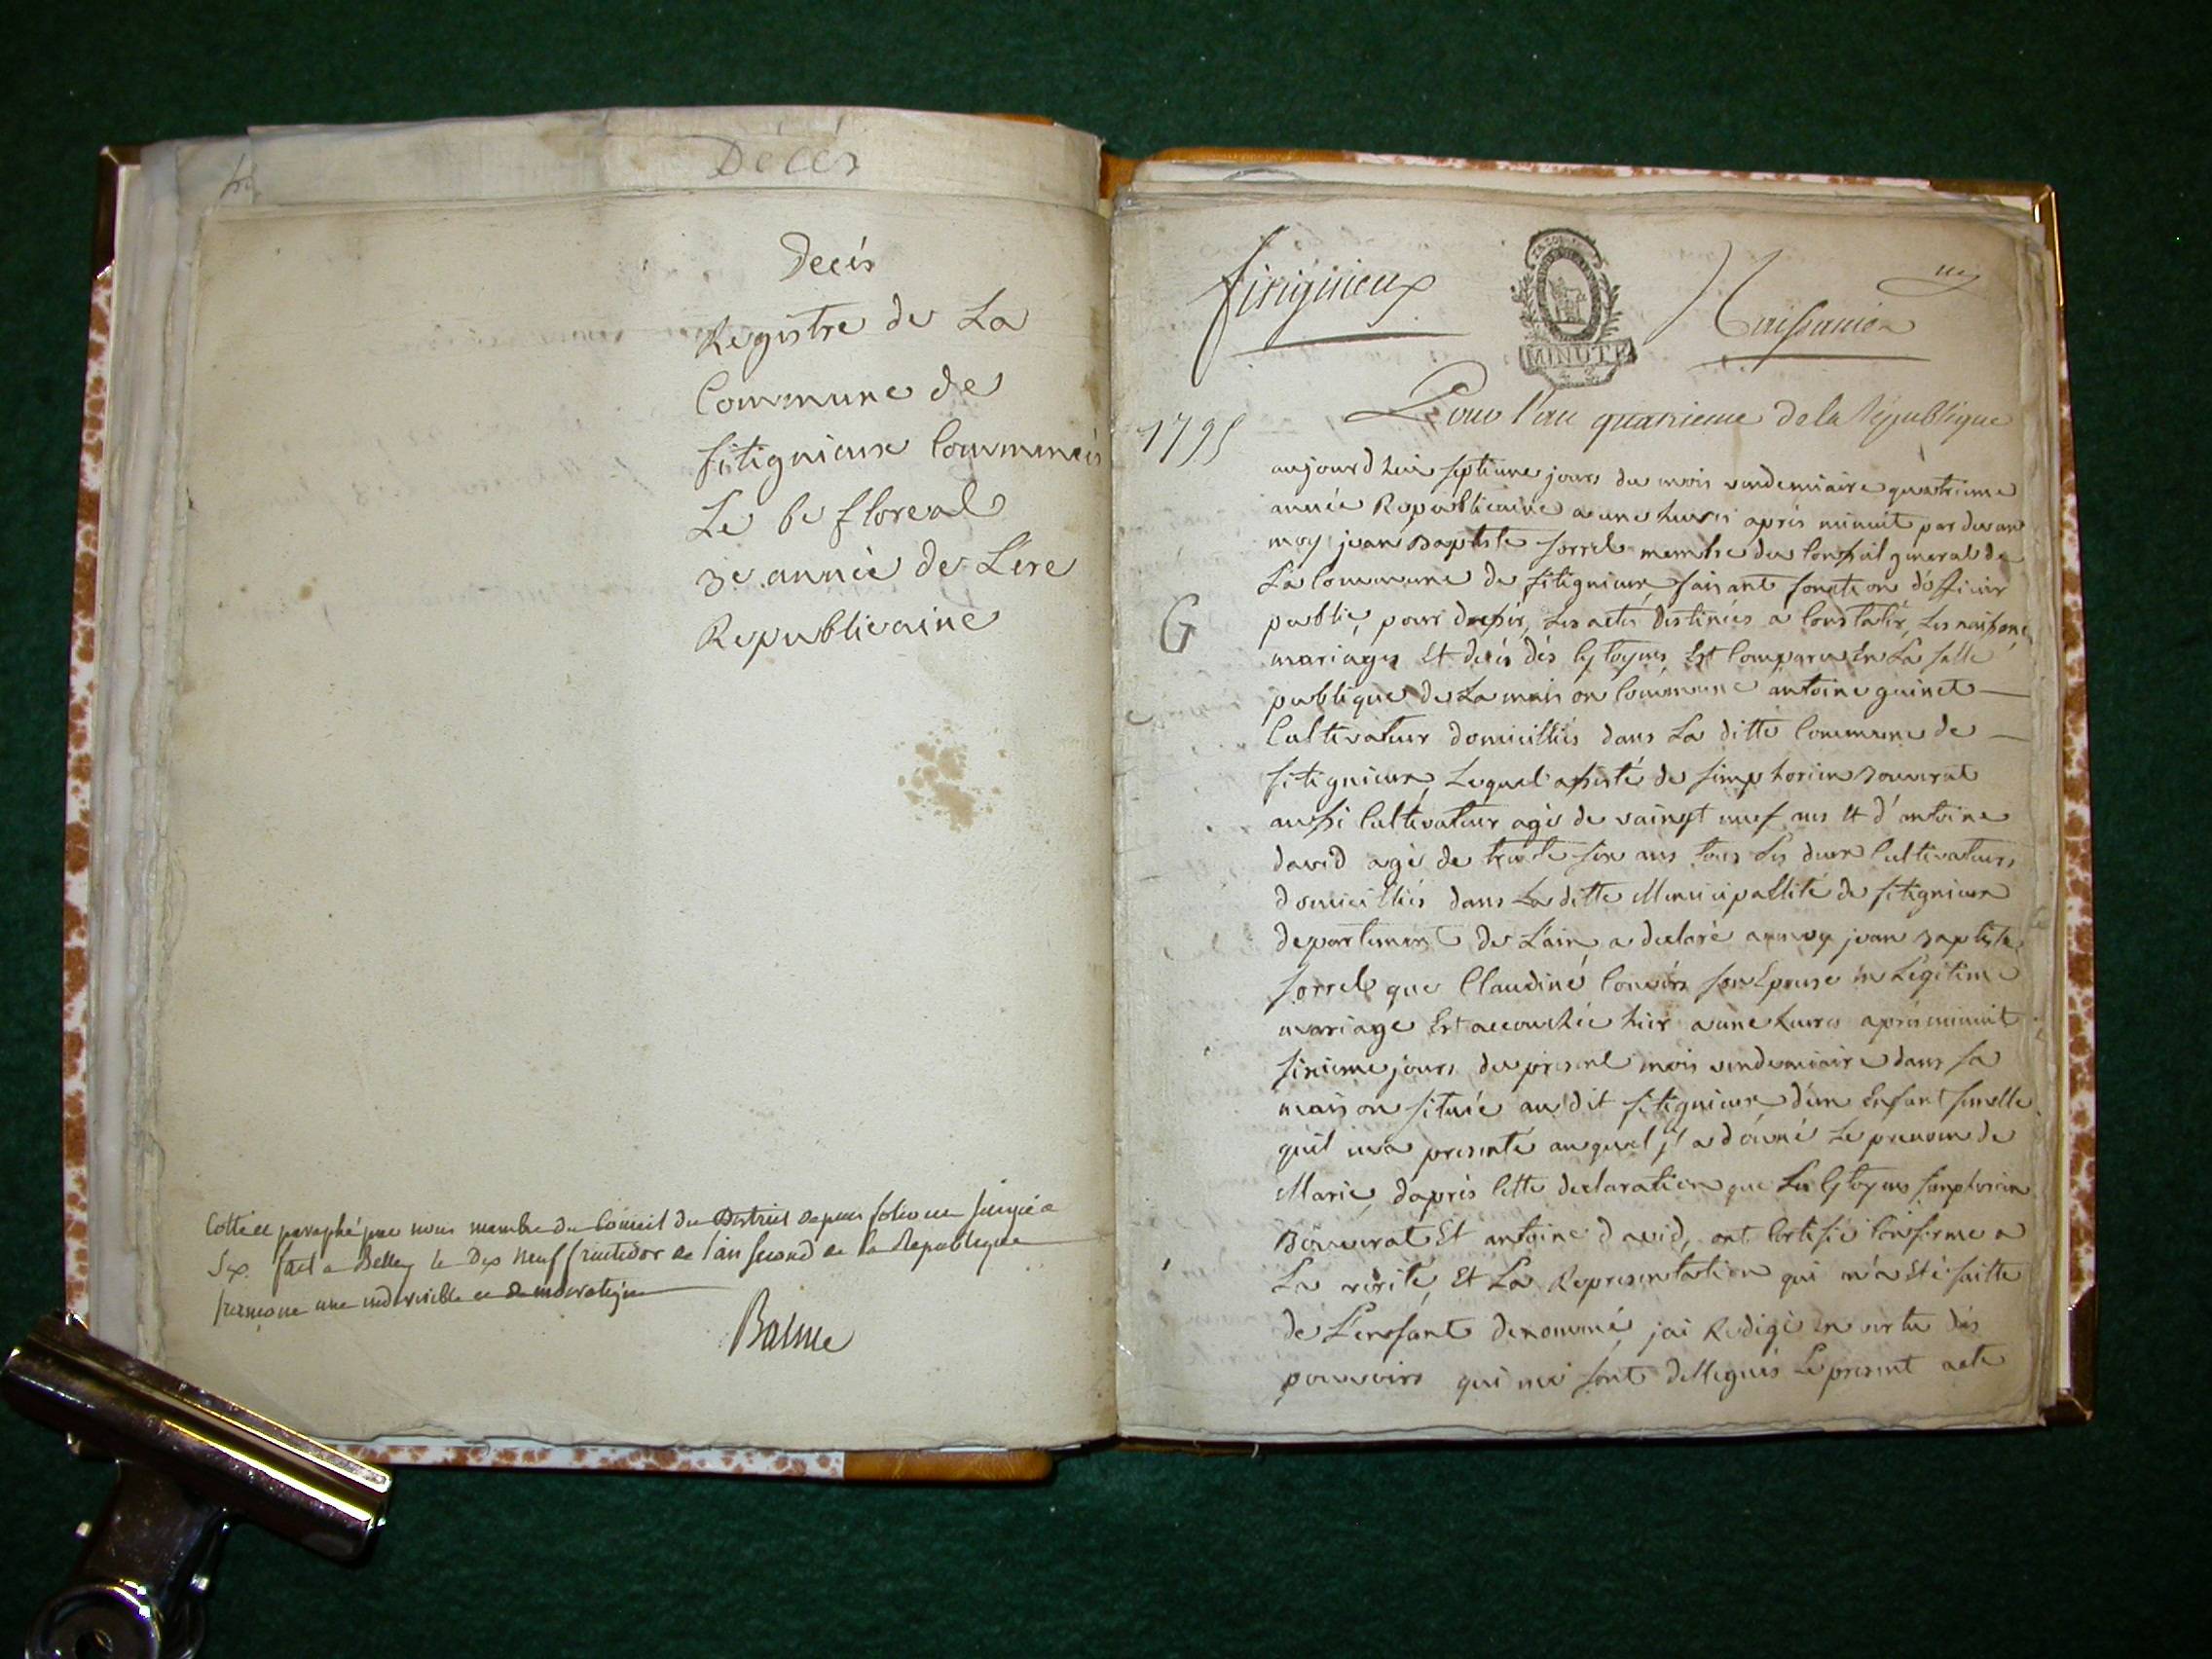 Décés
Decés
Registre de La
Commune de
fitignieux Commencés
Le 6e floreal
3e. année de L'ere
Republicaine
Cotté et paraphé par nous membre du Conseil du District depuis folio un jusqu'a
Six. fait a Belley le Dix neuf fructidor de l'an second de la Republique
francaise une indivisible et democratique
Balme
fitignieux
Naissances
MINUTE
Pour l'an quatrieme de la République
1795
aujourdhui septieme jours du mois vendemiaire quatrieme
année Republicaine a une heures aprés minuit par devant
moy jean Baptiste sorrel membre du Conseil general de
La Commune de fitignieux, faisant fonction d'officier
G
public, pour dresser, Les actes Destinées a Constatér, Les naissance
mariages Et decés dés Cytoyens Est Comparu En La salle
publique de La maison Commune antoine guinet
Cultivateur domicilliés dans La ditte Commune de
fitignieux, Lequel assisté de simphorien Bouvrat
aussi Cultivateur agé de vaingt neuf ans Et d'antoine
david agé de trente six ans tous Les deux Cultivateurs
domicilliés dans La ditte Municipallité de fitignieux
departement de L'ain, a declaré a moy jean Baptiste
sorrel que Claudiné son Epouse in Légitime
mariage Est accouchée hier a une heures aprés minuit
sixieme jours du present mois vendemiaire dans sa
maison située au'dit fitignieux, d'un Enfant femelle
quil m'a presenté auquel jl a donné Le prenom de
Marie, d'aprés Cette declaration que Les Cytoyens simphorien
Bouvrat Et antoine david, ont Certifié Conforme a
La verité, Et La Representation qui m'a Eté faitte
de L'enfant denommé, jai Redigé En vertu dés
pouvoirs qui me sont dellegués Le present acte